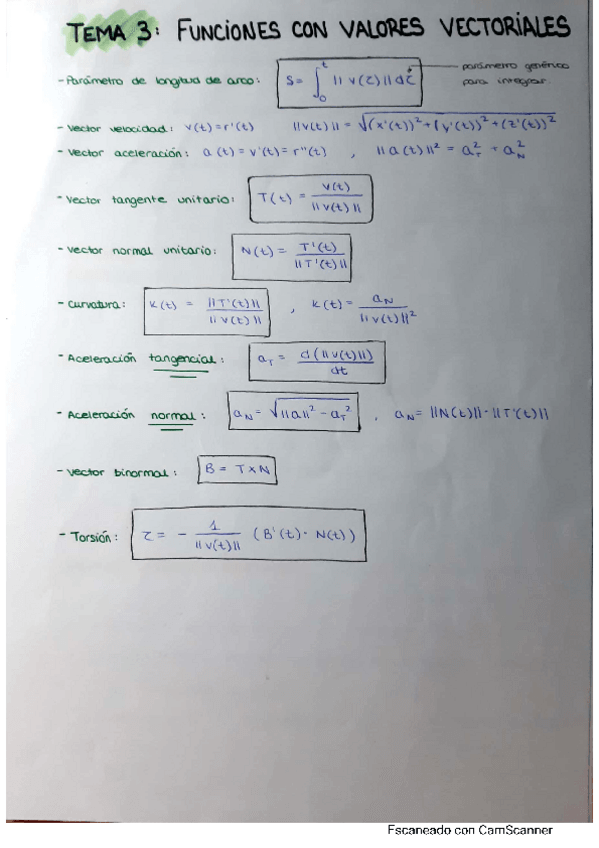 TEMA 3: FUNCIONES CON VALORES VECTORIALES
- Parámetro de longitud de arco: S = ∫₀ᵗ ||v(τ)|| dτ — parámetro genérico
para integrar.
- Vector velocidad: v(t) = r'(t) ||v(t)|| = √((x'(t))² + (y'(t))² + (z'(t))²)
- Vector aceleración: a(t) = v'(t) = r''(t) , ||a(t)||² = a_T² + a_N²
- Vector tangente unitario: T(t) = v(t) / ||v(t)||
- Vector normal unitario: N(t) = T'(t) / ||T'(t)||
- Curvatura: K(t) = ||T'(t)|| / ||v(t)|| , K(t) = a_N / ||v(t)||²
- Aceleración tangencial: a_T = d(||v(t)||) / dt
- Aceleración normal: a_N = √(||a||² - a_T²) , a_N = ||N(t)|| · ||T'(t)||
- Vector binormal: B = T × N
- Torsión: τ = - 1 / ||v(t)|| (B'(t) · N(t))
Escaneado con CamScanner